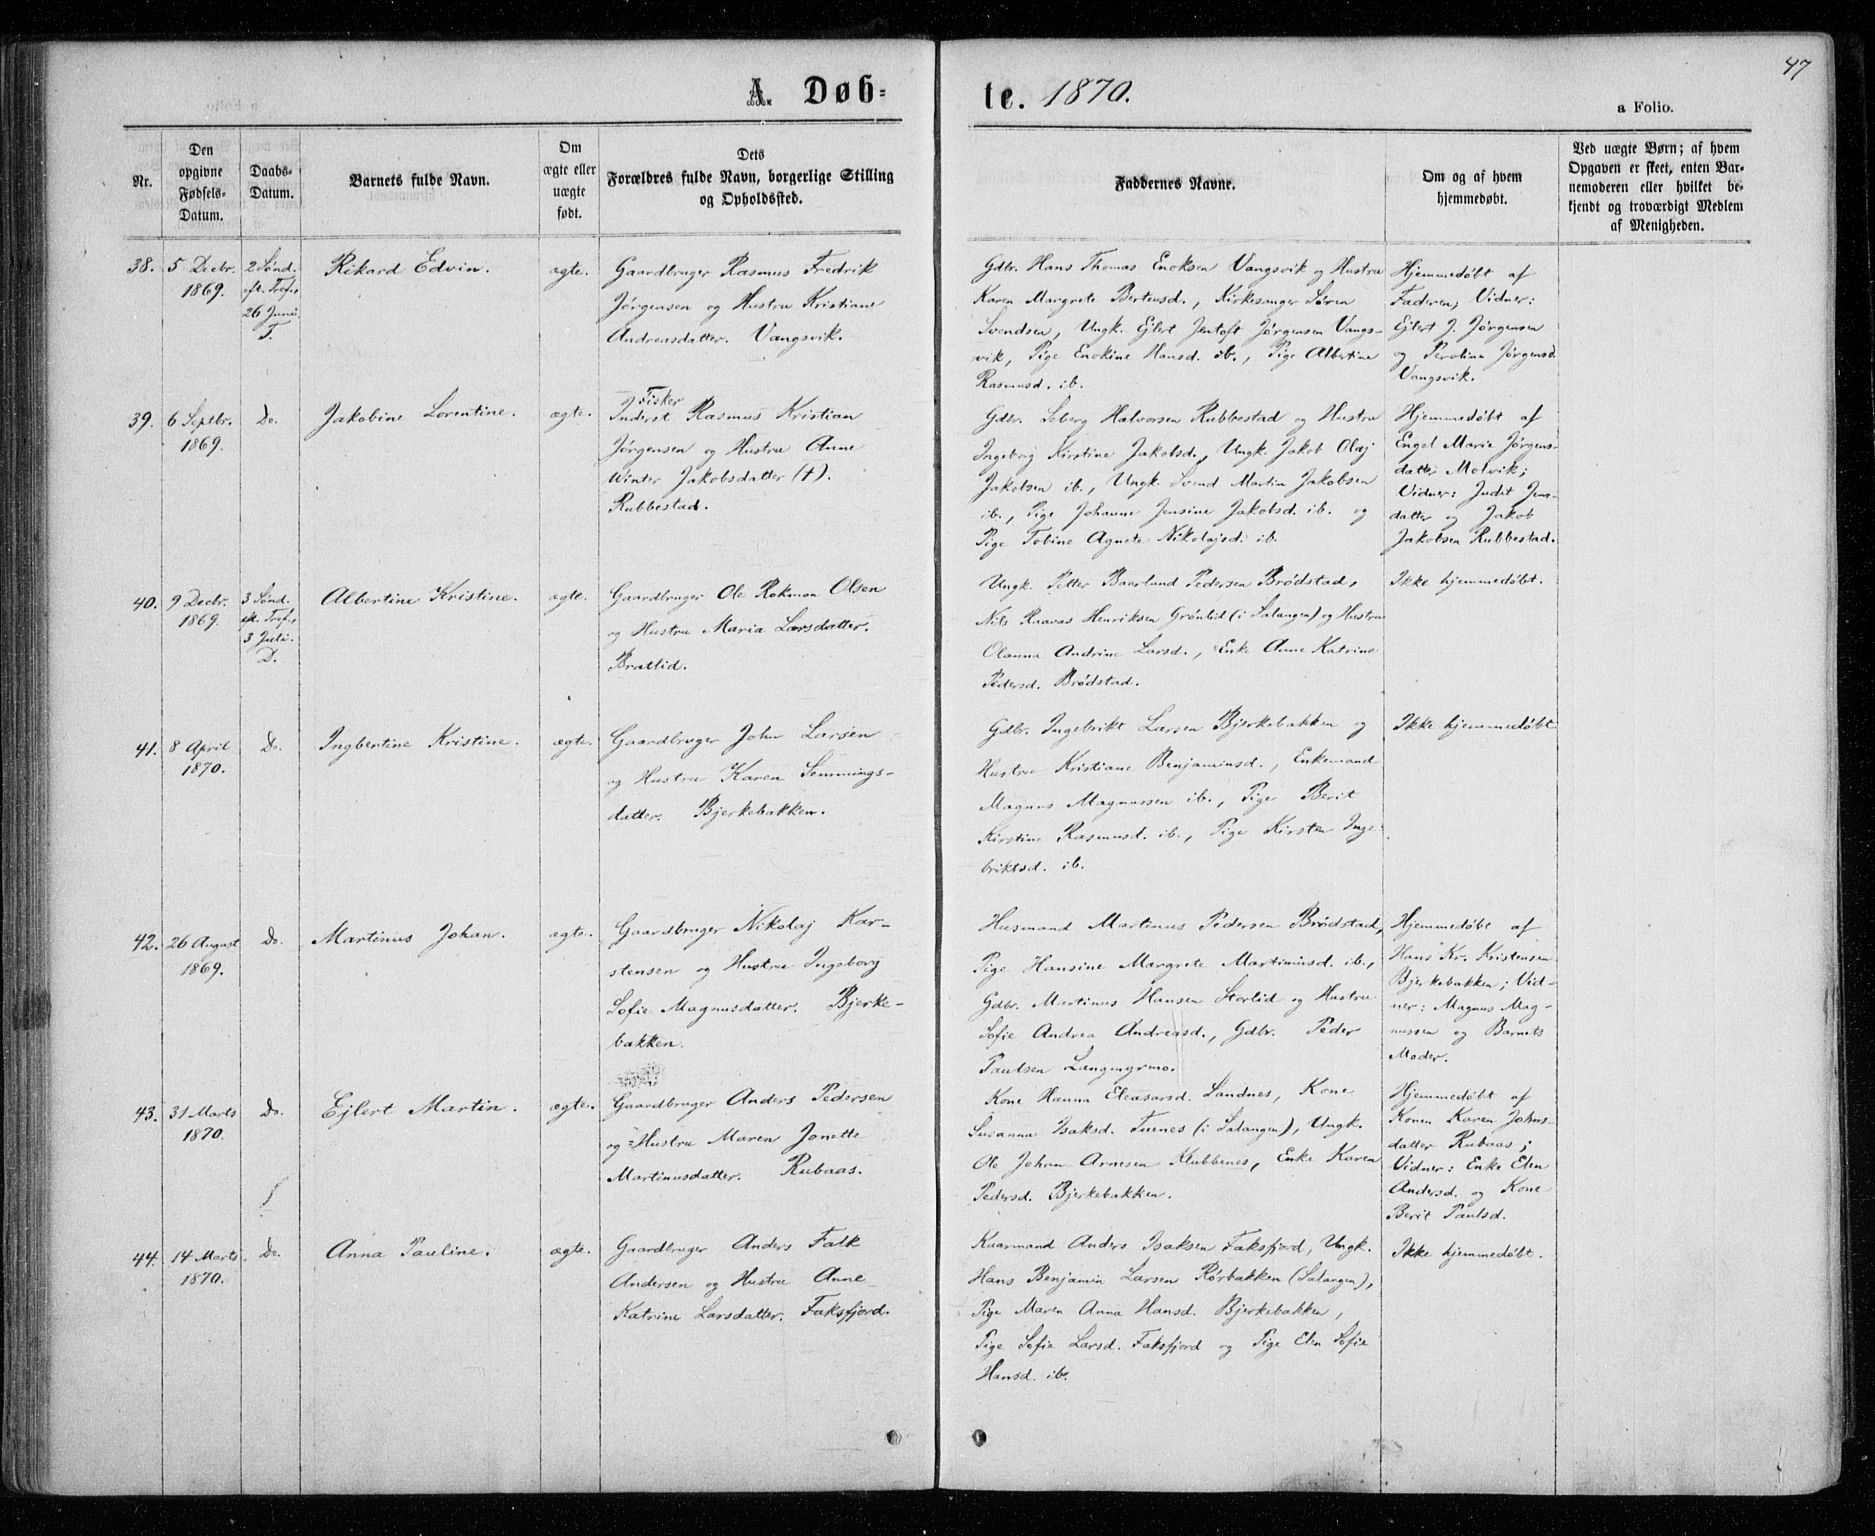 47
A. Døb-
te. 1870.
a Folio.
Nr.
Den
opgivne
Fødsels-
Datum.
Daabs-
Datum.
Barnets fulde Navn.
Om
ægte eller
uægte
født.
Dets
Forældres fulde Navn, borgerlige Stilling
og Opholdssted.
Faddernes Navne.
Om og af hvem
hjemmedøbt.
Ved uægte Børn; af hvem
Opgaven er skeet, enten Bar-
nemoderen eller hvilket be-
kjendt og troværdigt Medlem
af Menigheden.
38.
5 Decbr.
1869.
2 Sønd.
eft. Tref.,
26 Juni.
T.
Rikard Edvin.
ægte.
Gaardbruger Rasmus Fredrik
Jørgensen og Hustru Kristiane
Andreasdatter. Vangsvik.
Gdbr. Hans Thomas Enoksen Vangsvik og Hustru
Karen Margrete Bertensd., Kirkesanger Søren
Svendsen, Ungk. Ejlert Jentoft Jørgensen Vangs-
vik, Pige Enokine Hansd. ib., Pige Albertine
Rasmusd. ib.
Hjemmedøbt af
Faderen; Vidner:
Ejlert J. Jørgensen
og Peroline Jørgensd.
Vangsvik.
39.
6 Septbr.
1869.
Do.
Jakobine Lorentine.
ægte.
Fisker
Inderst Rasmus Kristian
Jørgensen og Hustru Anne
Winter Jakobsdatter (†).
Rubbestad.
Gdbr. Seberg Halvorsen Rubbestad og Hustru
Ingeborg Kirstine Jakobsd., Ungk. Jakob Olaj
Jakobsen ib., Ungk. Svend Martin Jakobsen
ib., Pige Johanne Jensine Jakobsd. ib. og
Pige Tobine Agnete Nikolajsd. ib.
Hjemmedøbt af
Engel Marie Jørgens-
datter Molvik;
Vidner: Judit Jens-
datter og Jakob
Jakobsen Rubbestad.
40.
9 Decbr.
1869.
3 Sønd.
eft. Tref.,
3 Juli.
D.
Albertine Kristine.
ægte.
Gaardbruger Ole Rokman Olsen
og Hustru Maria Larsdatter.
Bratlid.
Ungk. Petter Baarlund Pedersen Brødstad,
Nils Raavas Henriksen Grønlid (i Salangen) og Hustru
Olanna Andrine Larsd., Enke Anne Katrine
Pedersd. Brødstad.
Ikke hjemmedøbt.
41.
8 April
1870.
Do.
Ingbertine Kristine.
ægte.
Gaardbruger John Larsen
og Hustru Karen Semmings-
datter. Bjerkebakken.
Gdbr. Ingebrikt Larsen Bjerkebakken og
Hustru Kristiane Benjaminsd., Enkemand
Magnus Magnussen ib., Pige Berit
Kirstine Rasmusd. ib., Pige Kirsten Inge-
briktsd. ib.
Ikke hjemmedøbt
42.
26 August
1869.
Do.
Martinus Johan.
ægte.
Gaardbruger Nikolaj Kar-
stensen og Hustru Ingeborg
Sofie Magnusdatter. Bjerke-
bakken.
Husmand Martinus Pedersen Brødstad,
Pige Hansine Margrete Martinusd. ib.,
Gdbr. Martinus Hansen Storlid og Hustru
Sofie Andrea Andreasd., Gdbr. Peder
Paulsen Langmyrmo.
Hjemmedøbt af
Hans Kr. Kristensen
Bjerkebakken; Vid-
ner: Magnus Mag-
nussen og Barnets
Moder.
43.
31 Marts
1870.
Do.
Ejlert Martin.
ægte.
Gaardbruger Anders Pedersen
og Hustru Maren Jonette
Martinusdatter. Rubaas.
Kone Hanna Eleasarsd. Sandnes, Kone
Susanna Isaksd. Tuenes (i Salangen), Ungk.
Ole Johan Arnesen Klubbenes, Enke Karen
Pedersd. Bjerkebakken.
Hjemmedøbt af
Konen Karen Johns-
datter Rubaas;
Vidner: Enke Elen
Andersd. og Kone
Berit Paulsd.
44.
14 Marts
1870.
Do.
Anna Pauline.
ægte.
Gaardbruger Anders Falk
Andersen og Hustru Anne
Katrine Larsdatter. Faksfjord.
Kaarmand Anders Isaksen Faksfjord, Ungk.
Hans Benjamin Larsen Rørbakken (Salangen),
Pige Maren Anna Hansd. Bjerkebakken,
Pige Sofie Larsd. Faksfjord og Pige Elen Sofie
Hansd. ib.
Ikke hjemmedøbt.